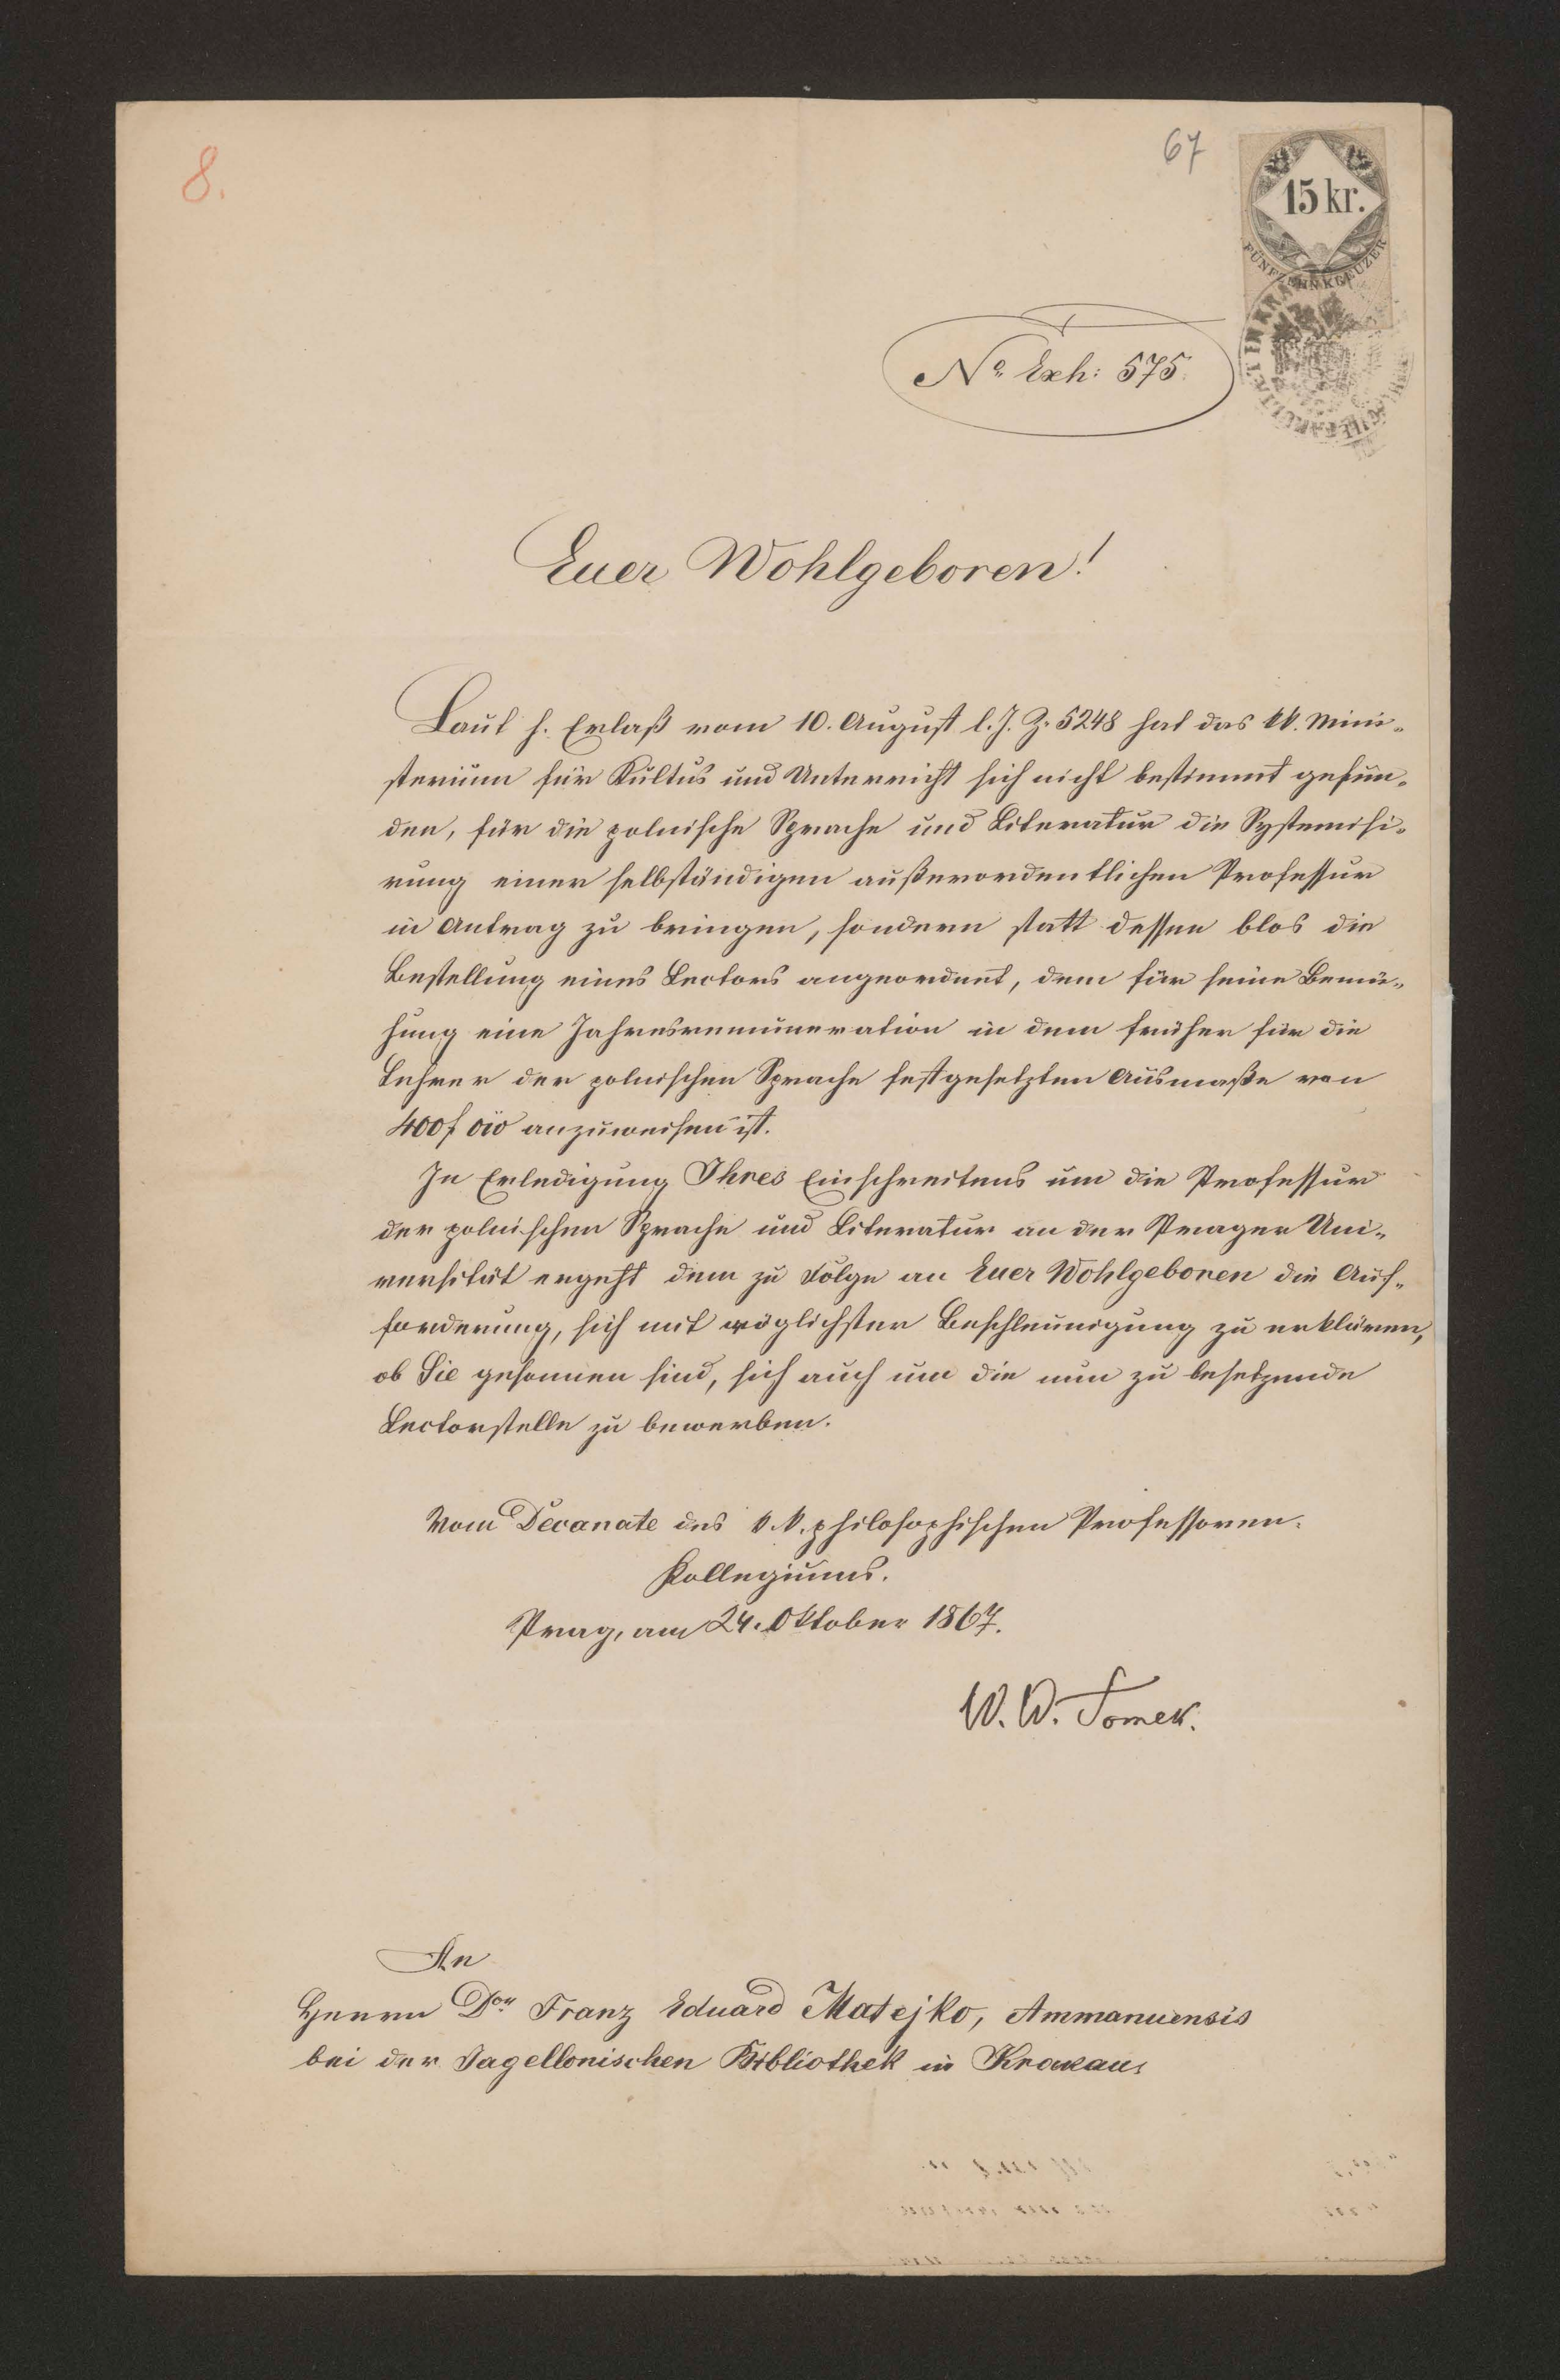 8.
67
15 kr.
FÜNFZEHN KREUZER
No. Exh: 575.
Euer Wohlgeboren!
Laut h. Erlaß vom 10. August l. J. Z. 5248 hat das kk. Mini-
sterium für Kultus und Unterricht sich nicht bestimmt gefun-
den, für die polnische Sprache und Literatur die Systemisi-
rung einer selbständigen außerordentlichen Professur
in Antrag zu bringen, sondern statt dessen blos die
Bestellung eines Lectors angeordnet, dem für seine Bemü-
hung eine Jahresremuneration in dem früher für die
Lehrer der polnischen Sprache festgesetzten Ausmaße von
400 f öw anzuweisen ist.
In Erledigung Ihres Einschreitens um die Professur
der polnischen Sprache und Literatur an der Prager Uni-
versität ergeht dem zu Folge an Euer Wohlgeboren die Auf-
forderung, sich mit möglichster Beschleunigung zu erklären,
ob Sie gesonnen sind, sich auch um die nun zu besetzende
Lectorstelle zu bewerben.
Vom Decanate des k. k. philosophischen Professoren-
Kollegiums.
Prag, am 24. Oktober 1867.
W. W. Tomek.
An
Herrn Dor Franz Eduard Matejko, Ammanuensis
bei der Jagellonischen Bibliothek in Krakau.